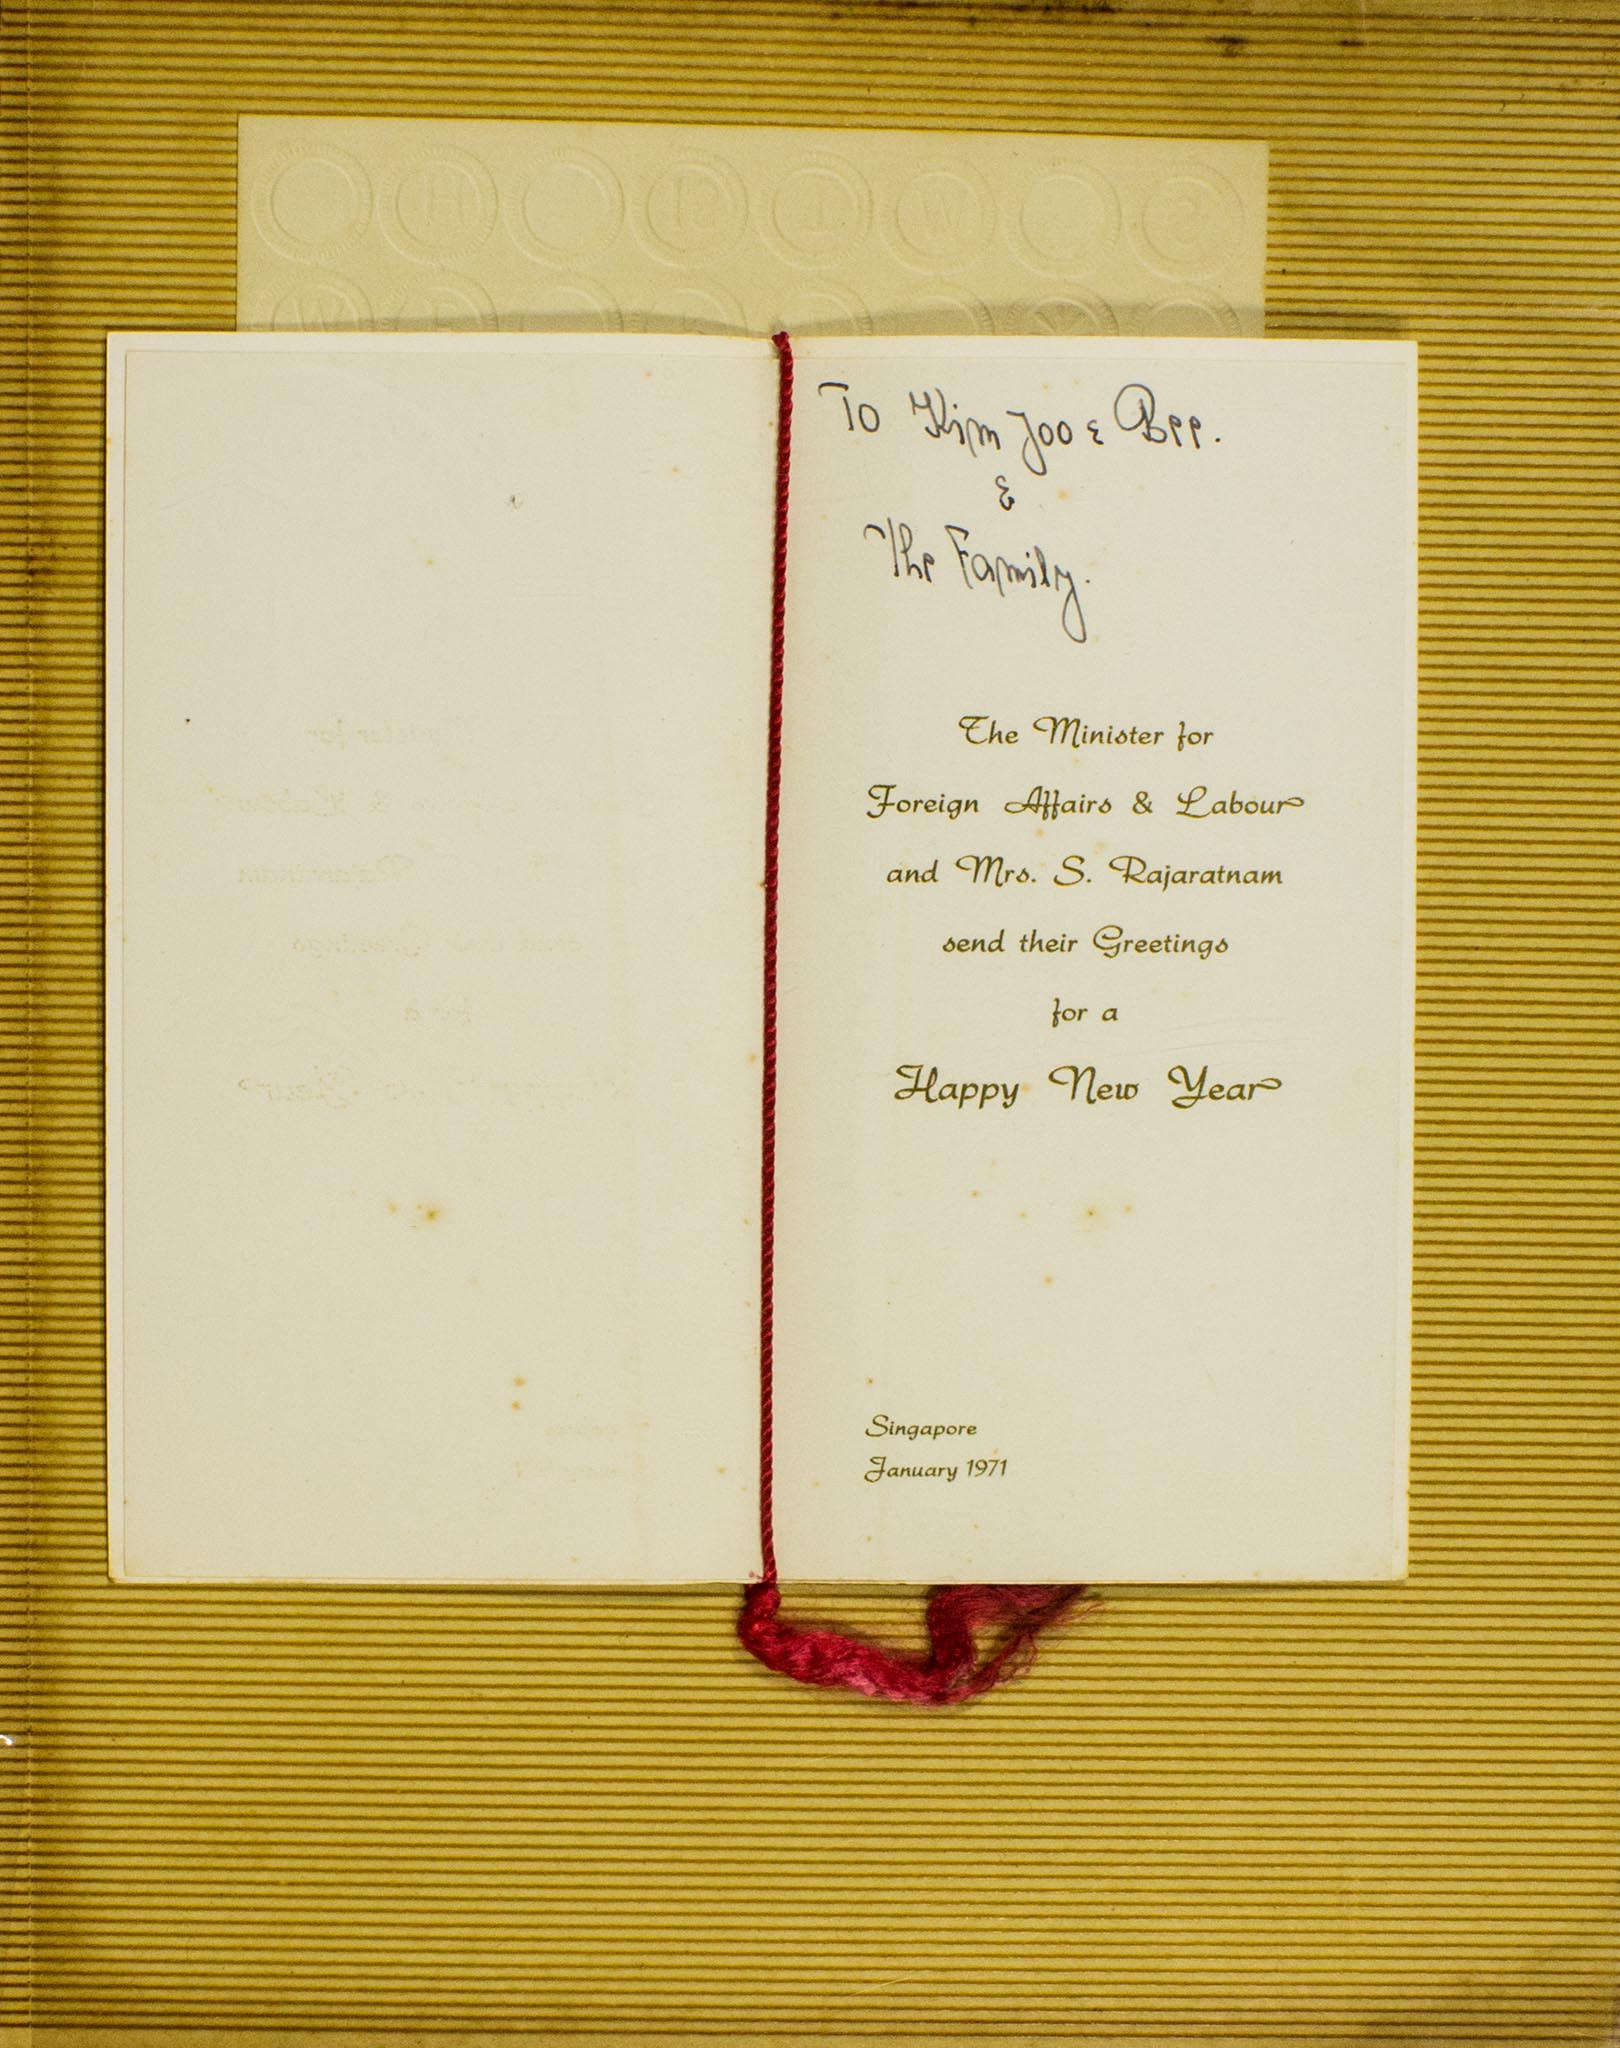 To Kim Joo & Bee.
&
The Family.
The Minister for
Foreign Affairs & Labour
and Mrs. S. Rajaratnam
send their Greetings
for a
Happy New Year
Singapore
January 1971